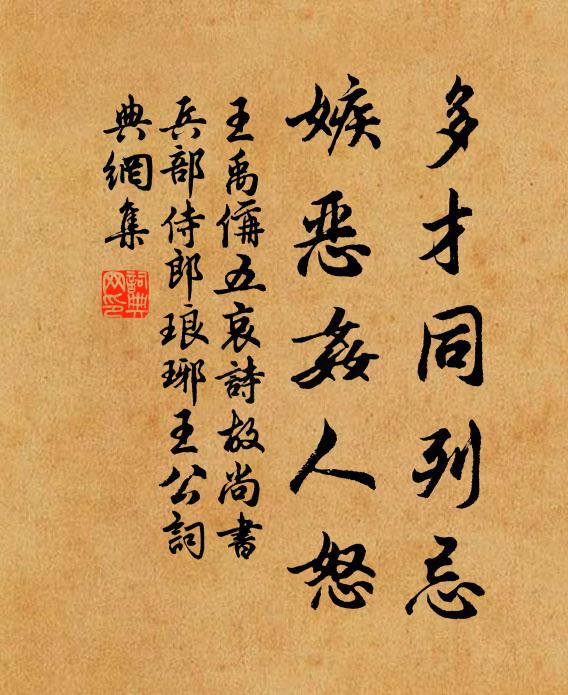 多才同列忌
嫉惡姦人怒
王禹偁五哀詩故尚書
兵部侍郎琅琊王公詞
典網集
詞典網印